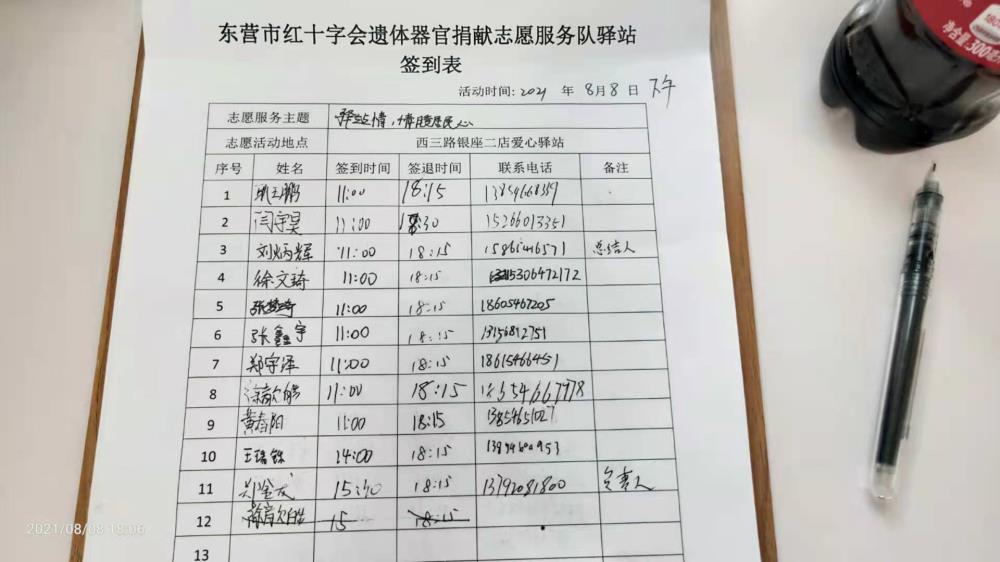 东营市红十字会遗体器官捐献志愿服务队驿站
签到表
活动时间: 2021 年 8月8日 下午
志愿服务主题 驿站情,情暖居民心
志愿活动地点 西三路银座二店爱心驿站
序号 姓名 签到时间 签退时间 联系电话 备注
1 11:00 18:15
2 闫宇昊 11:00 18:30 15266013351
3 刘炳辉 11:00 18:15 总结人
4 徐文琦 11:00 18:15 15306472172
5 11:00 18:15 18605467205
6 张鑫宇 11:00 18:15 13156812751
7 郑宇泽 11:00 18:15 18615466451
8 11:00 18:15 18354667978
9 黄春阳 11:00 18:15 13854651027
10 14:00 18:15
11 18:15 13792081800 负责人
12 15 18:15
13
2021/08/08 18:06
300